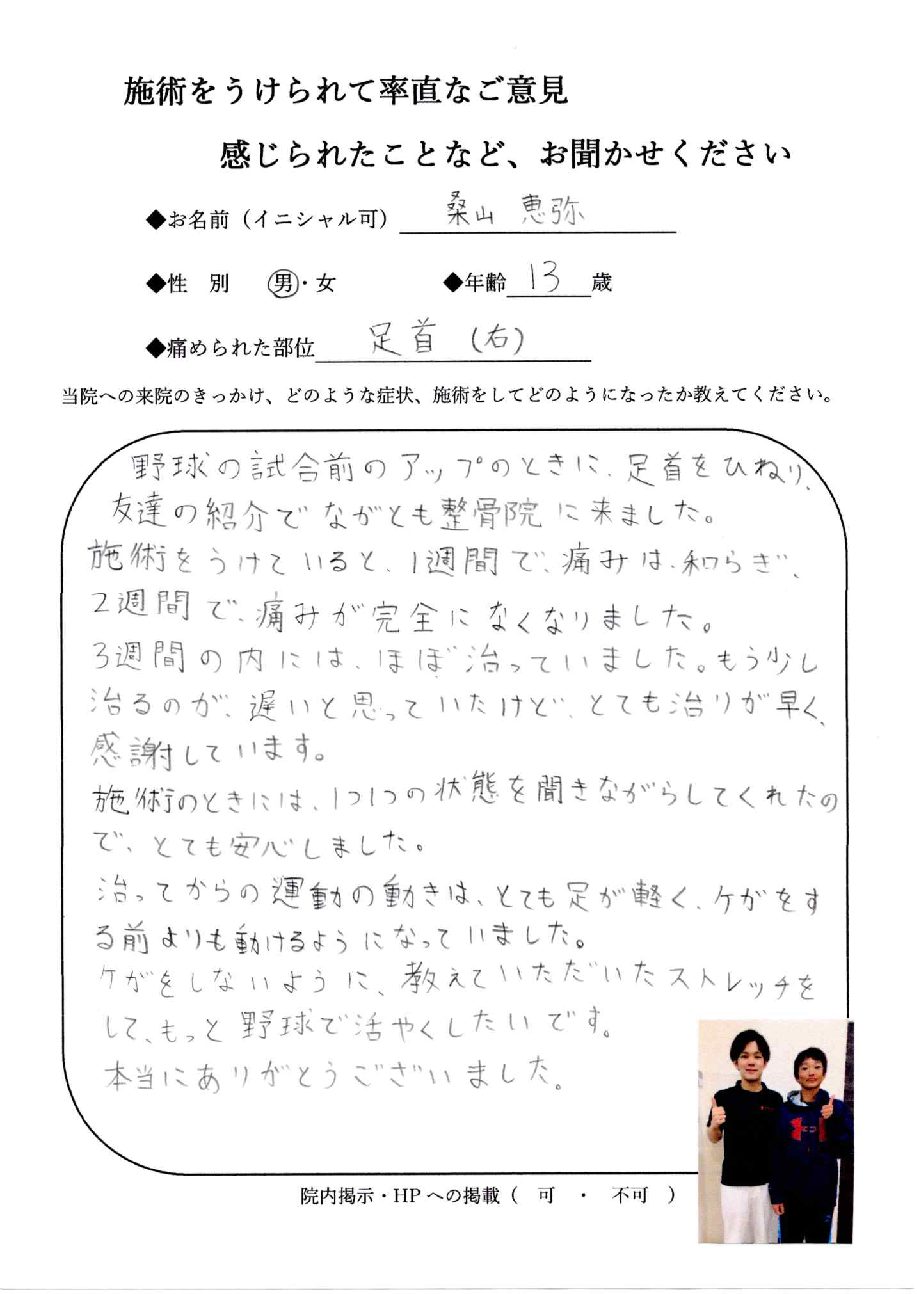 施術をうけられて率直なご意見
感じられたことなど、お聞かせください
◆お名前（イニシャル可） 桑山 恵弥
◆性 別 男・女 ◆年齢 13 歳
◆痛められた部位 足首（右）
当院への来院のきっかけ、どのような症状、施術をしてどのようになったか教えてください。
野球の試合前のアップのときに、足首をひねり、
友達の紹介でながとも整骨院に来ました。
施術をうけていると、1週間で、痛みは、和らぎ、
2週間で、痛みが完全になくなりました。
3週間の内には、ほぼ治っていました。もう少し
治るのが、遅いと思っていたけど、とても治りが早く、
感謝しています。
施術のときには、1つ1つの状態を聞きながらしてくれたの
で、とても安心しました。
治ってからの運動の動きは、とても足が軽く、ケがをす
る前よりも動けるようになっていました。
ケがをしないように、教えていただいたストレッチを
して、もっと野球で活やくしたいです。
本当にありがとうございました。
院内掲示・HPへの掲載（ 可 ・ 不可 ）